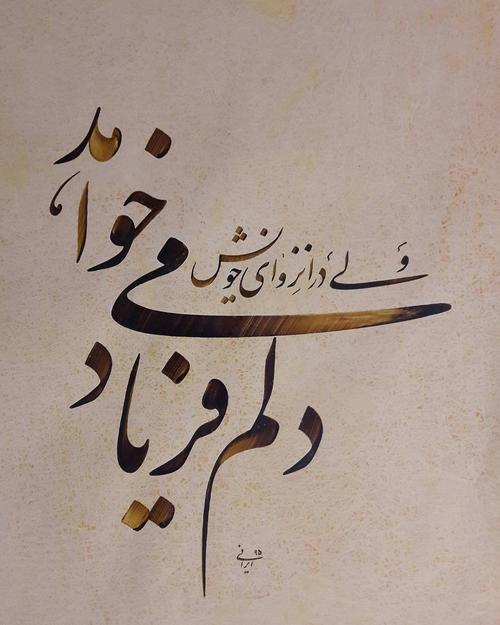 دلم فریاد
می خواهد
ولی در انزوای خویش
ایرانی ۹۵